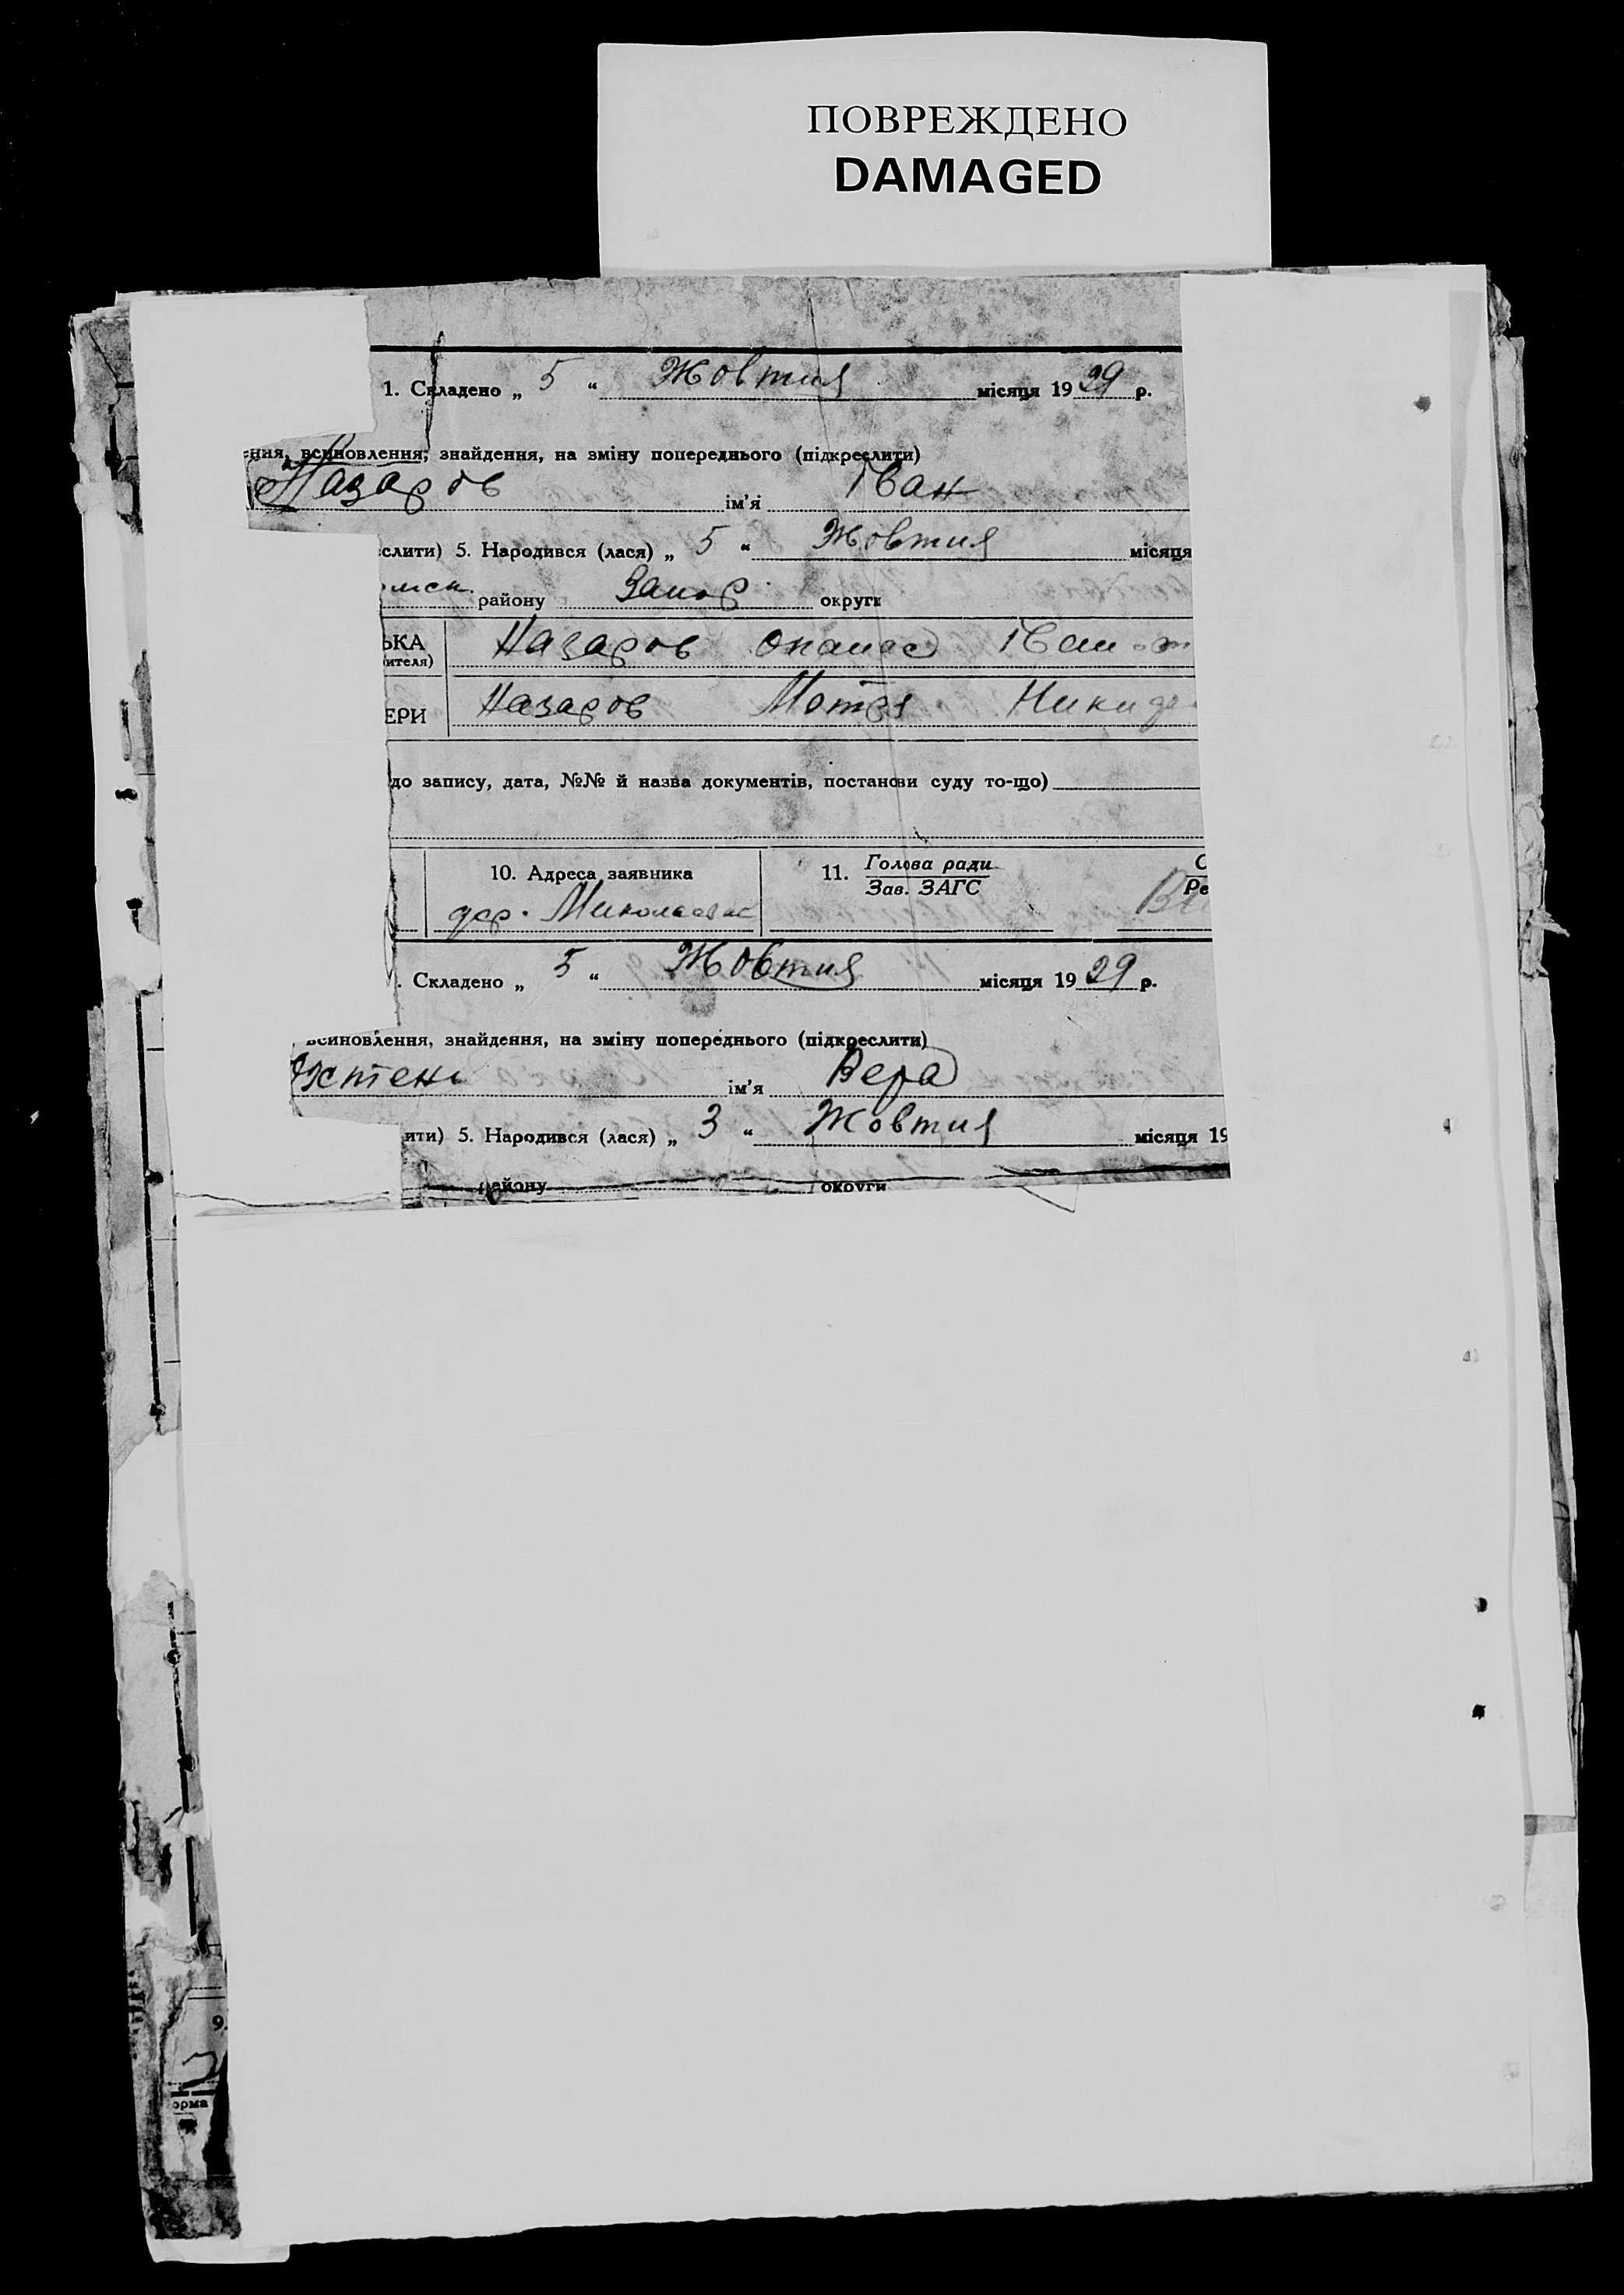 ПОВРЕЖДЕНО
DAMAGED
1. Складено „ 5 “ Жовтня місяця 1929 р.
ння, всиновлення, знайдення, на зміну попереднього (підкреслити)
Назаров ім’я Іван
слити) 5. Народився (лася) „ 5 “ Жовтня місяця
омск. району Запор. округи
ЬКА Назаров Опанас Іван
ителя)
ЕРИ Назаров Мотря
до запису, дата, №№ й назва документів, постанови суду то-що)
10. Адреса заявника 11. Голова ради
Зав. ЗАГС Ре
. Складено „ 5 “ Жовтня місяця 1929 р.
всиновлення, знайдення, на зміну попереднього (підкреслити)
ім’я Вера
ити) 5. Народився (лася) „ 3 “ Жовтня місяця 19
району округи
9.
орма